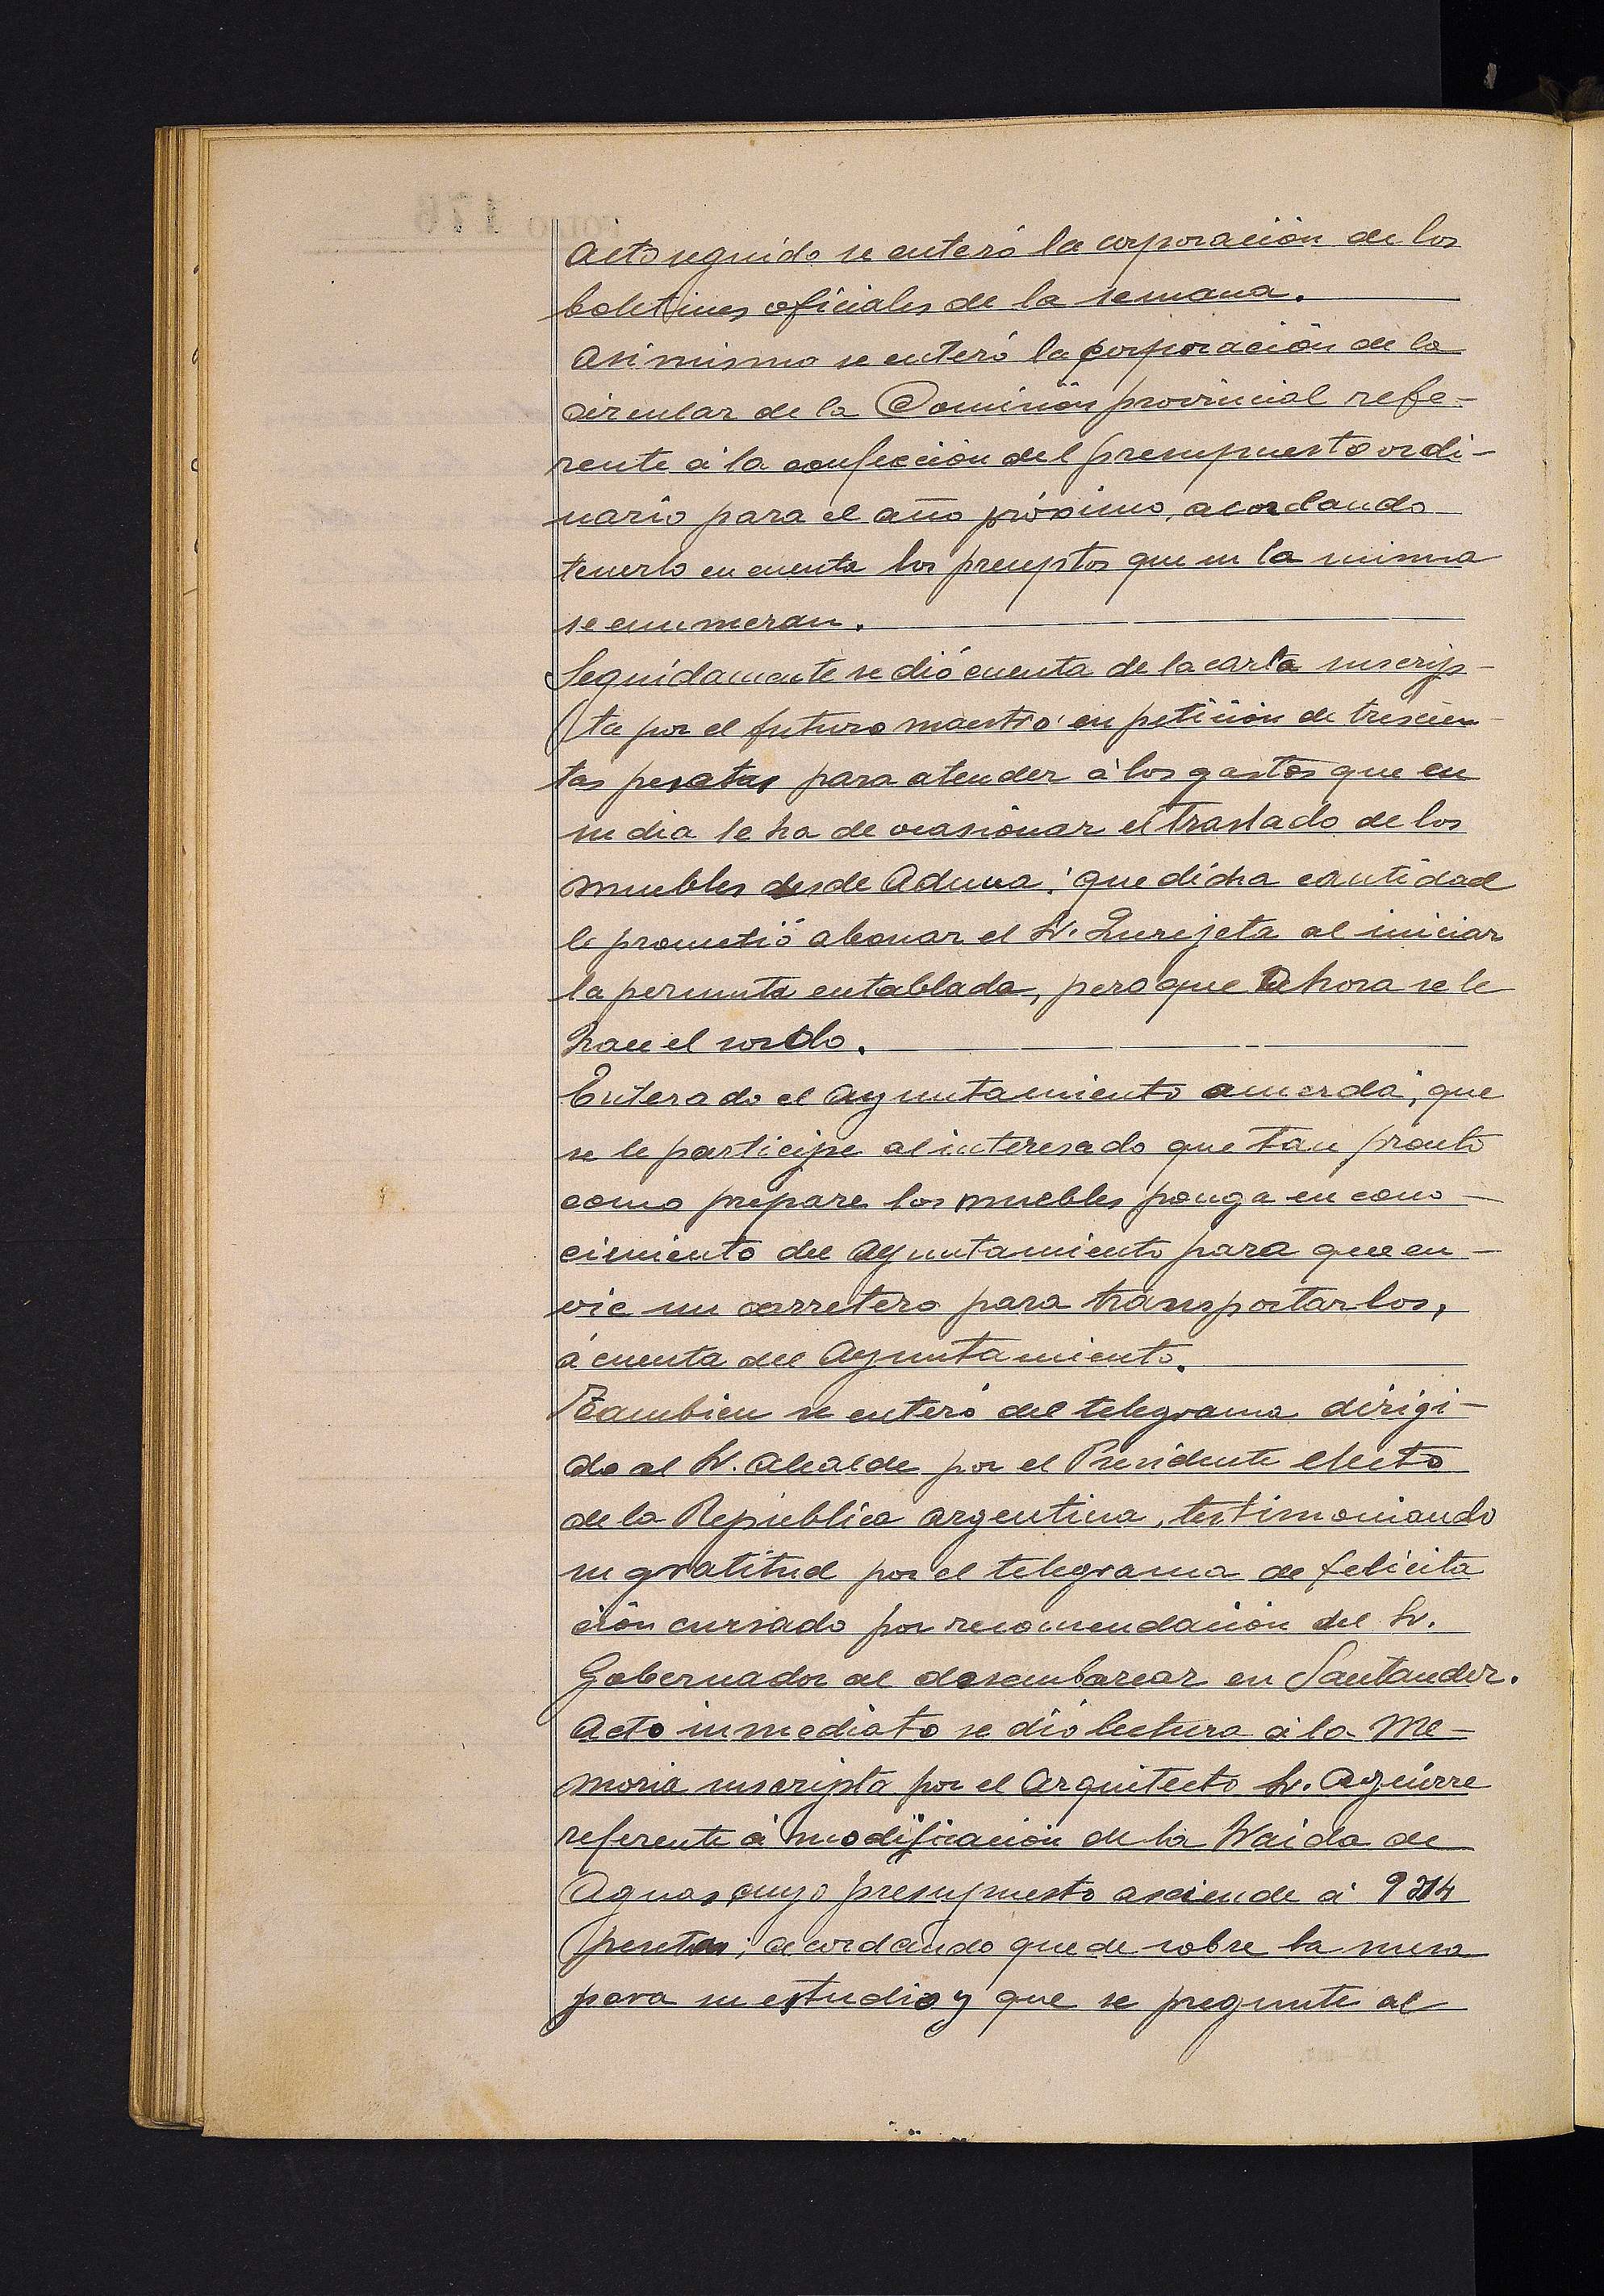 Acto seguido se enteró la corporación de los
boletines oficiales de la semana.
Asimismo se enteró la corporación de la
circular de la Comisión provincial refe-
rente á la confección del presupuesto ordi-
nario para el año próximo, acordando
tenerlo en cuenta los preceptos que en la misma
se enumeran.
Seguidamente se dió cuenta de la carta suscrip-
ta por el futuro maestro en petición de trescien-
tas pesetas para atender á los gastos que en
su dia le ha de ocasionar el traslado de los
muebles desde Aduna: que dicha cantidad
le prometió abonar el Sr. Lurijeta al iniciar
la permuta entablada, pero que ahora se le
hace el sordo.
Enterado el Ayuntamiento acuerda, que
se le participe al interesado que tan pronto
como prepare los muebles ponga en cono-
cimiento del Ayuntamiento para que en-
vie un carretero para transportarlos,
á cuenta del Ayuntamiento.
Tambien se enteró del telegrama dirigi-
do al Sr. Alcalde por el Presidente electo
de la República Argentina, testimoniando
su gratitud por el telegrama de felicita
ción cursado por recomendación del Sr.
Gobernador al desembarcar en Santander.
Acto inmediato se dió lectura á la Me-
moria suscripta por el Arquitecto Sr. Aguirre
referente á modificación de la traida de
Aguas, cuyo presupuesto asciende á
pesetas; acordando quede sobre la mesa
para su estudio y que se pregunte al